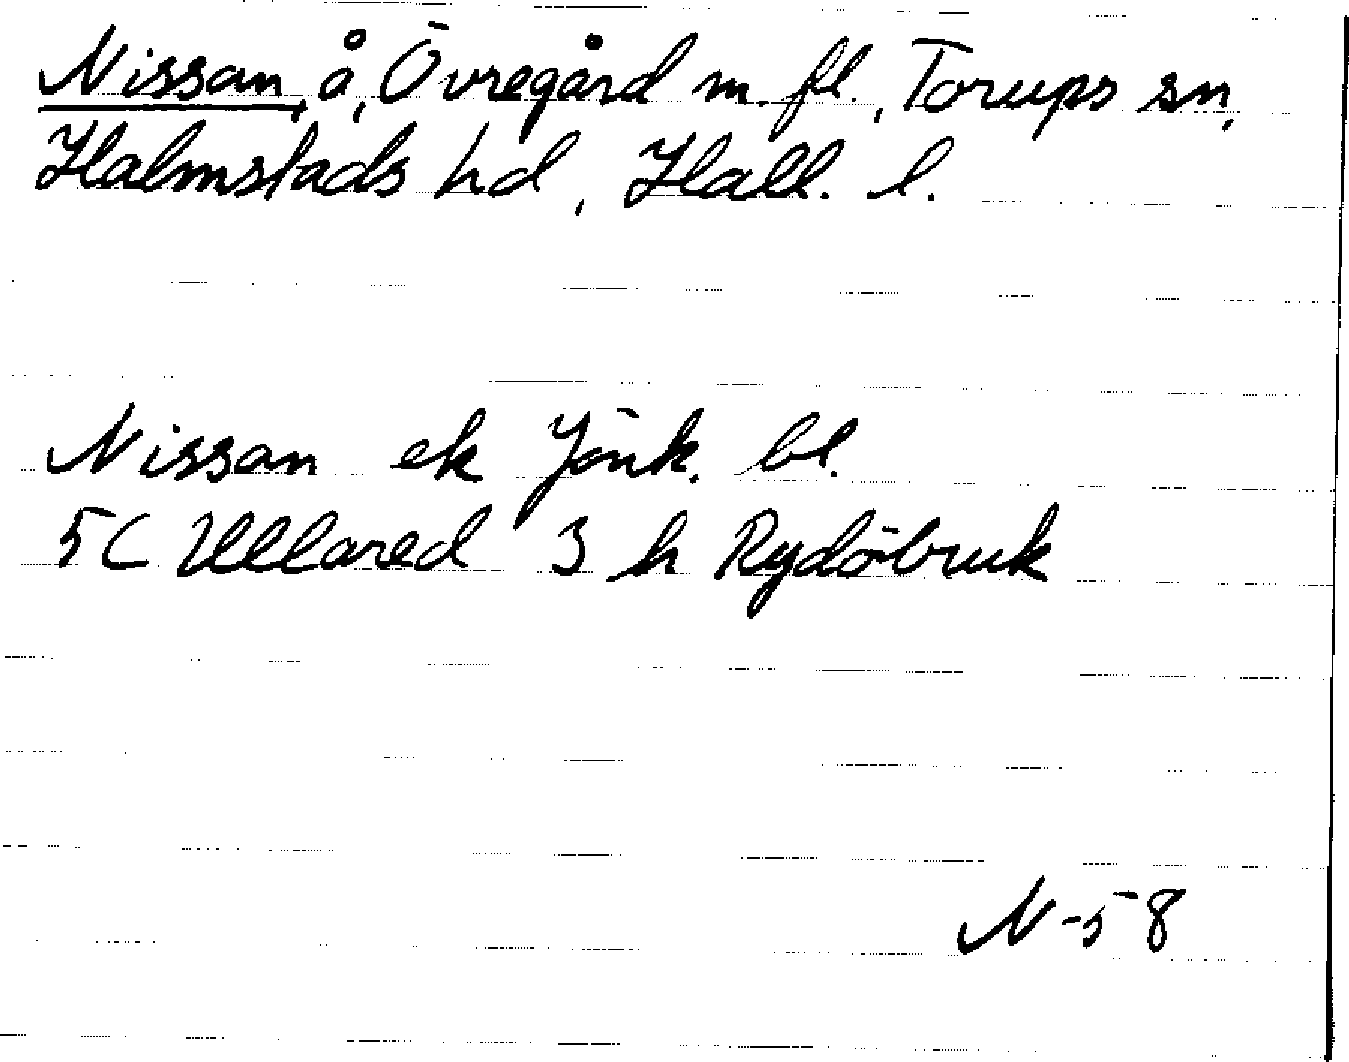 Nissan, å, Övregård m. fl., Torups sn,
Halmstads hd, Hall. l.
Nissan ek Jönk. bl.
5C Ullared 3 h Rydöbruk
N-58